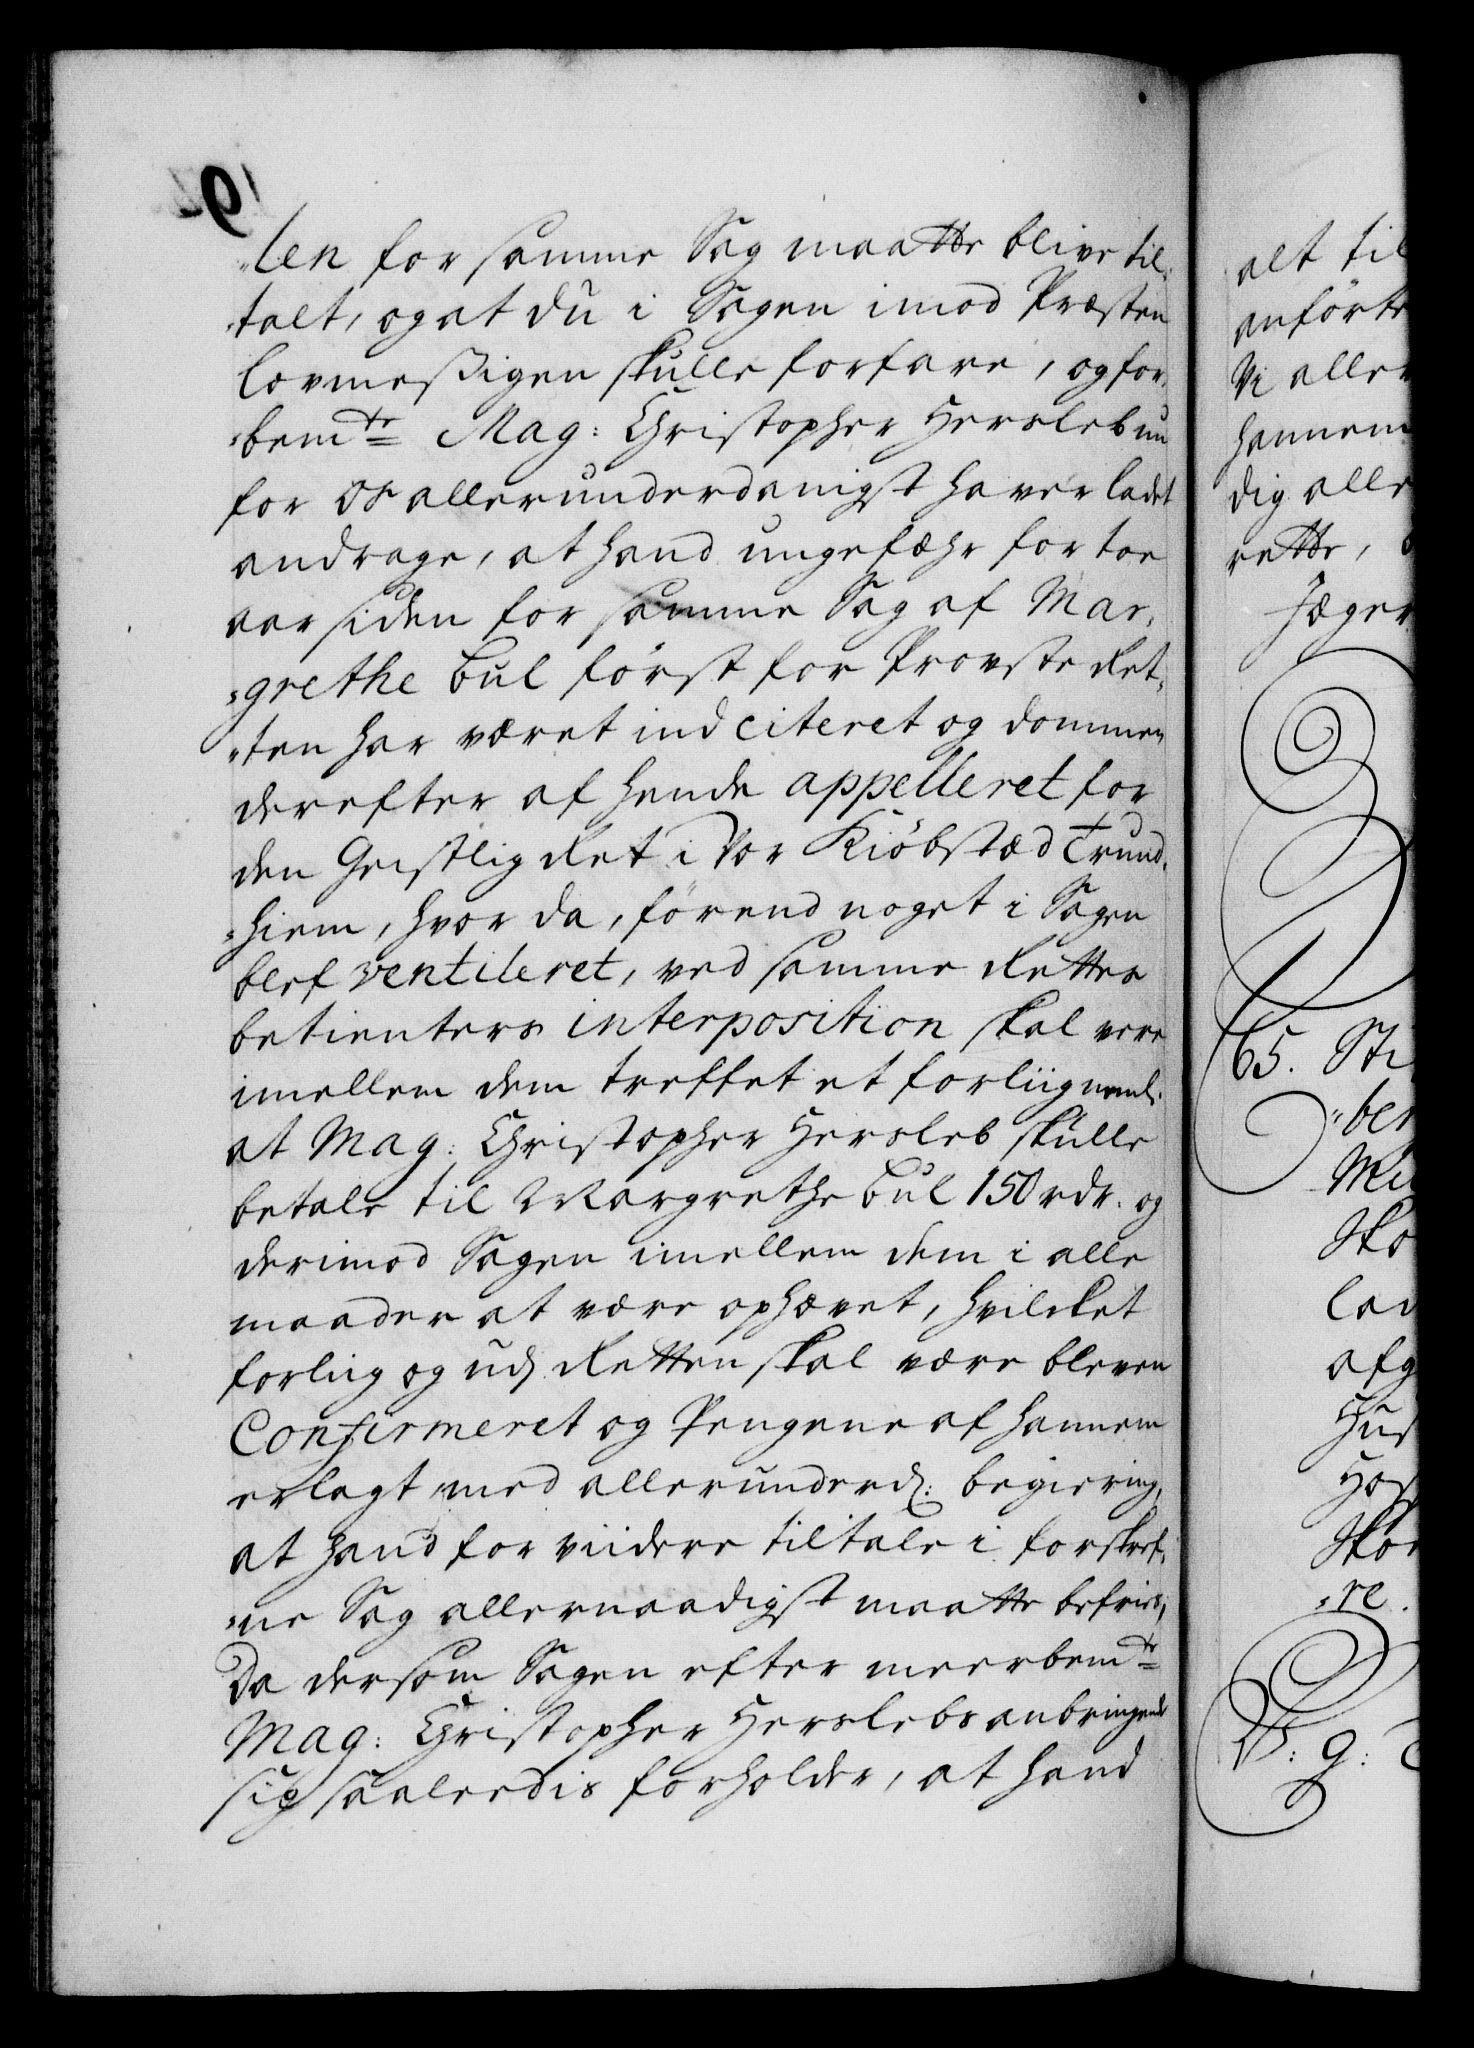 "len for samme Sag maatte blive til,
"talt, og at du i Sagen imod Præsten
lovmeßigen skulle forfare, og for,
"bemte Mag: Christopher Hersleb nu
for os allerunderdanigst haver ladet
andrage, at hand ungefæhr for toe
aar siden for samme Sag af Mar,
"grethe Bul först for Provste Ret,
"ten har været ind citeret og dommen
derefter af hende appelleret for
den Geistlig Ret i Vor Kiöbstæd Trund,
"hiem, hvor da, förend noget i Sagen
blef ventileret, ved samme Rettes
betienters interposition skal vere
imellem dem treffet et forliig nemlig
at Mag: Christopher Hersleb skulle
betale til Margrethe Bul 150 rdr. og
derimod Sagen imellem dem i alle
maader at være ophævet, hvilcket
forliig og udj Retten skal være bleven
Confirmeret og Pengene af hannem
erlagt med allerunderd: begiering,
at hand for viidere tiltale i forskref,
"ne Sag allernaadigst maatte befries,
Da dersom Sagen efter meerbemte
Mag: Christopher Herslebs anbringende
sig saaleedis forholder, at hand
alt til
anförte
Vi aller
hannem
dig alle
rette,
Jæger
65. Sti
"ber
Sko
afg
Hus
"re.